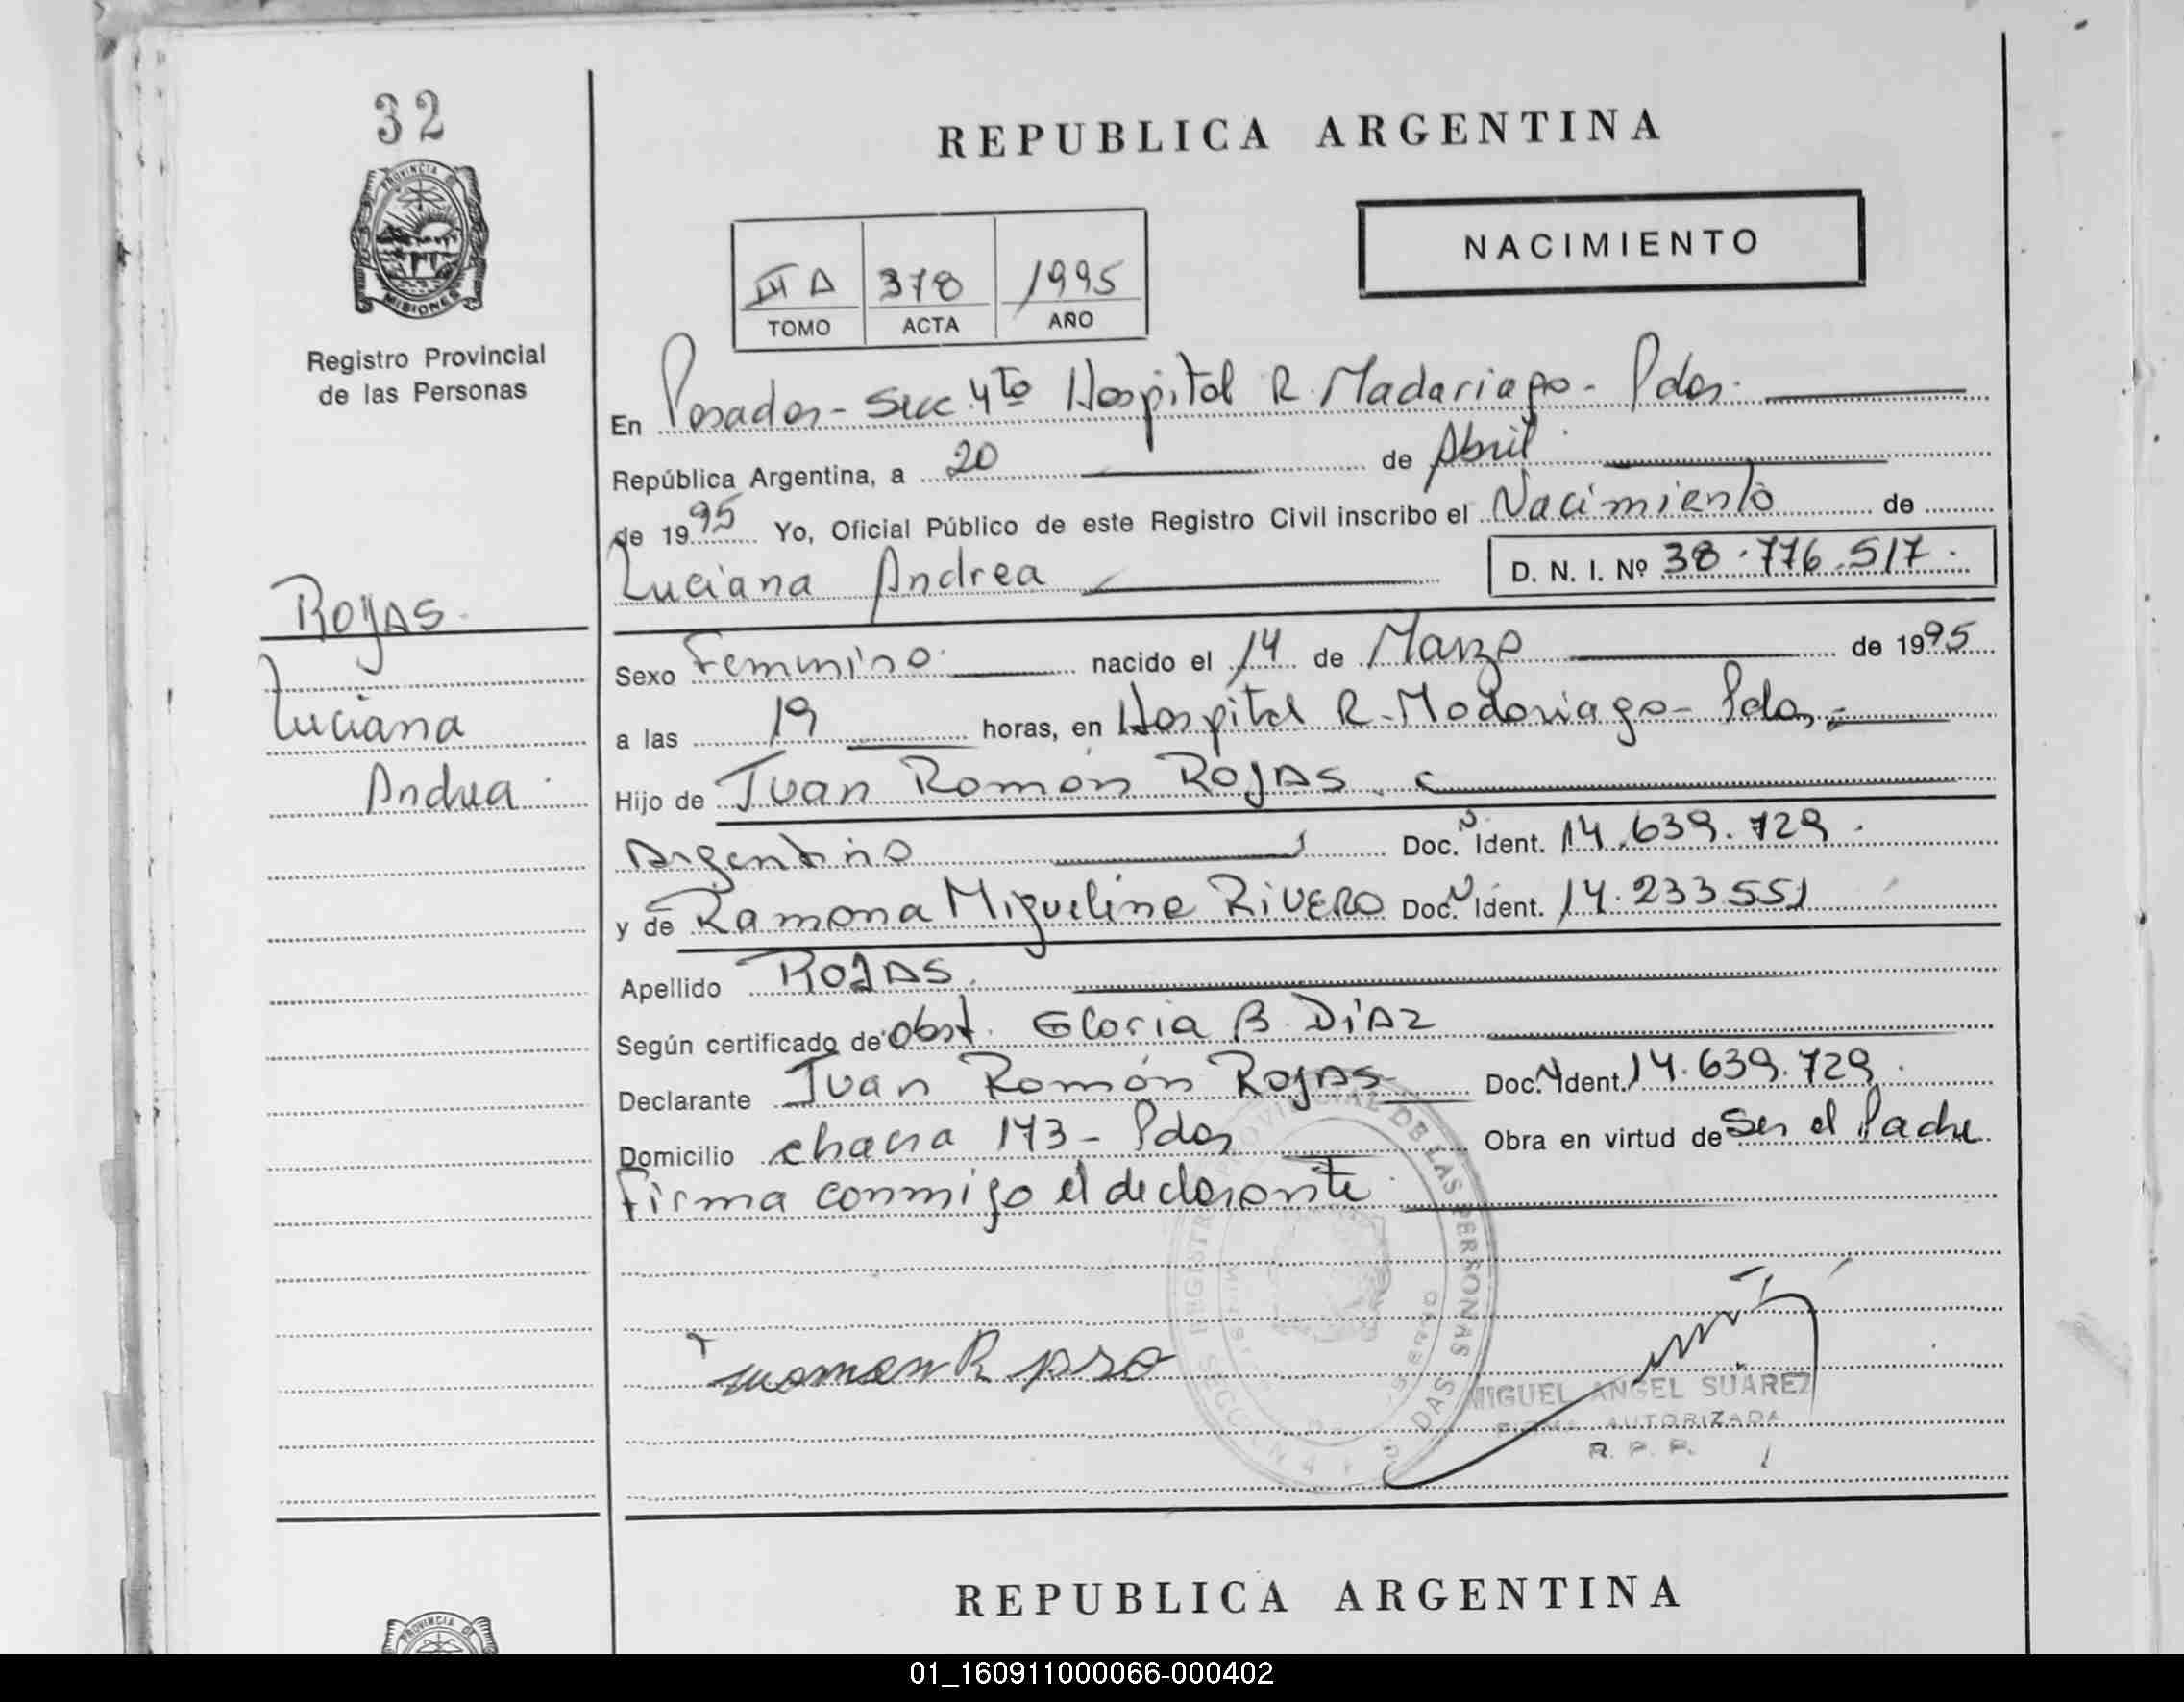 32
PROVINCIA DE
MISIONES
Registro Provincial
de las Personas
REPUBLICA ARGENTINA
NACIMIENTO
III A 378 1995
TOMO ACTA AÑO
En Posadas - Secc. 4to Hospital R. Madariaga - Pdas.
República Argentina, a 20 de Abril
de 1995 Yo, Oficial Público de este Registro Civil inscribo el Nacimiento de
Luciana Andrea D. N. I. Nº 38.776.517.
ROJAS
Luciana
Andrea
Sexo Femenino nacido el 14 de Marzo de 1995
a las 19 horas, en Hospital R. Madariaga - Pdas,
Hijo de Juan Ramón ROJAS
Argentino Doc. N Ident. 14.639.729.
y de Ramona Miguelina RIVERO Doc. N Ident. 14.233.551
Apellido ROJAS.
Según certificado de Obst. Gloria B. DIAZ
Declarante Juan Ramón ROJAS Doc. N Ident. 14.639.729.
Domicilio chacra 143 - Pdas Obra en virtud de Ser el Padre
Firma conmigo el declarante
REGISTRO PROVINCIAL DE LAS PERSONAS
MIGUEL ANGEL SUAREZ
FIRMA AUTORIZADA
R. P. P.
REPUBLICA ARGENTINA
PROVINCIA DE
01_160911000066-000402